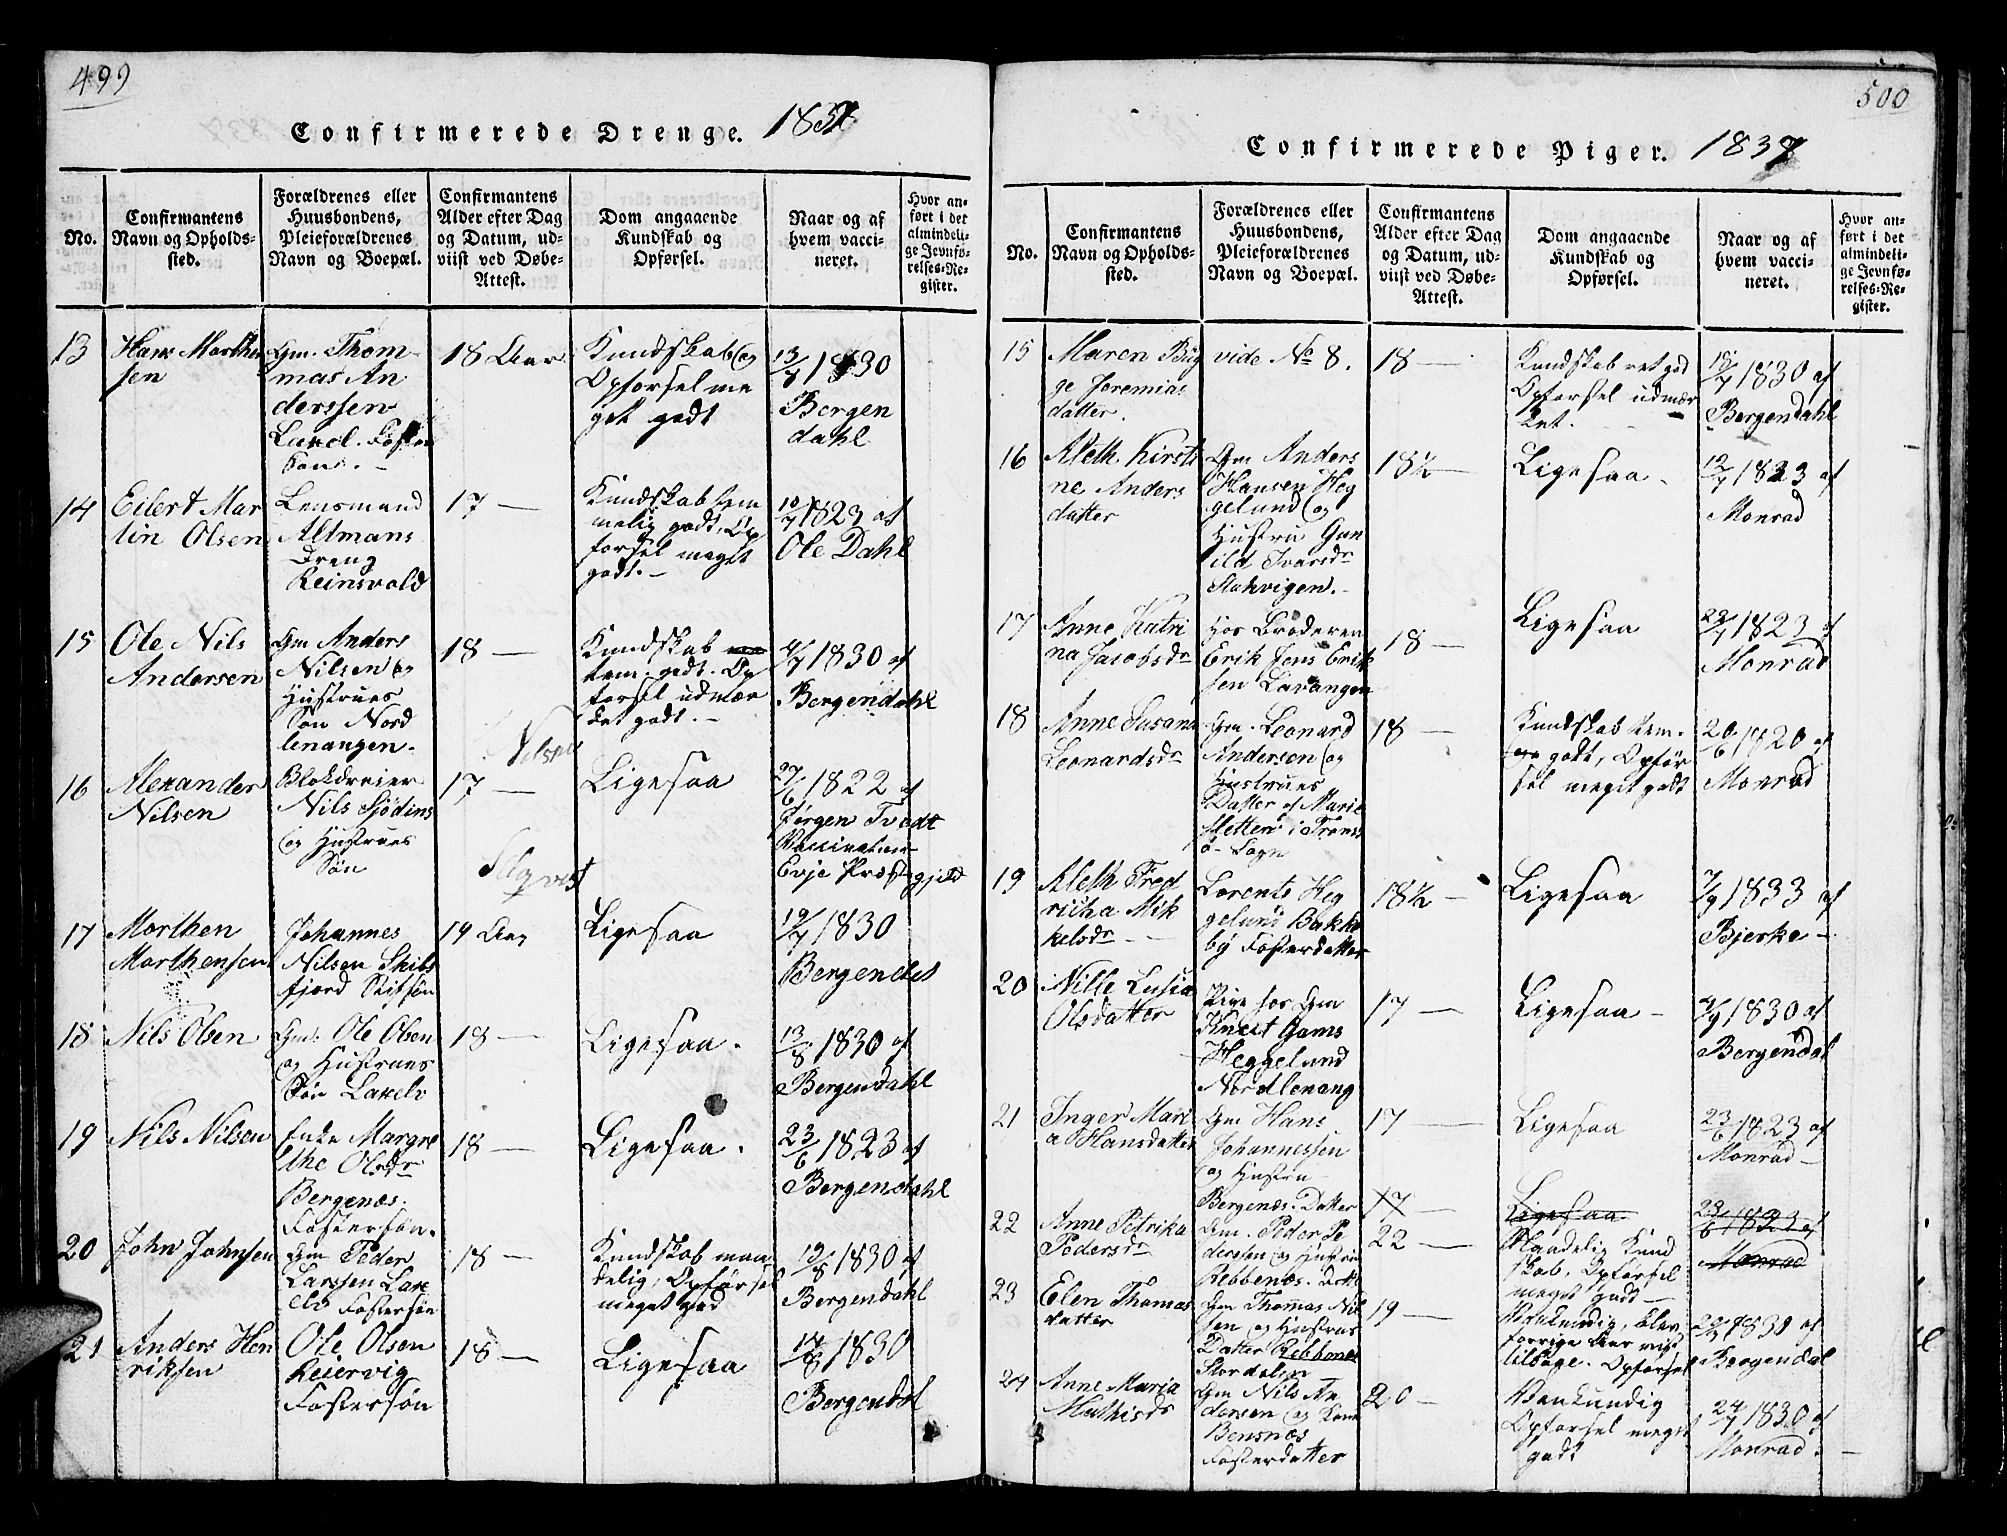 499
Confirmerede Drenge. 1837
No.
Confirmantens
Navn og Opholds-
sted.
Forældrenes eller
Huusbondens,
Pleieforældrenes
Navn og Boepæl.
Confirmantens
Alder efter Dag
og Datum, ud-
viist ved Døbe-
Attest.
Dom angaaende
Kundskab og
Opførsel.
Naar og af
hvem vacci-
neret.
Hvor an-
ført i det
almindeli-
ge Jevnfø-
relses-Re-
gister.
13
Hans Morthen
sen
Gm. Thom-
mas An
derssen
Laxel. Foster
Søn. -
18 Aar
Kundskab og
Opforsel me
get godt
13/7 1830
Bergen
dahl
14
Eilert Mar
tin Olsen
Lensmand
Altmans
Dreng
Reinsvold
17 —
Kundskab tem
melig godt, Op
forsel meget
godt. -
10/7 1823 af
Ole Dahl
15
Ole Nils
Andersen
Gm Anders
Nilsen og
Hustrues
Søn Nord
lenangen.
18 —
Kundskab
tem. godt. Op
forsel udmær
ket godt. -
4/7 1830 af
Bergendahl
16
Alexander
Nilsen
Blokdreier
Nils Sjödins
og Hustrues
Søn
17 —
Ligesaa
27/6 1822 af
Jørgen Tvedt
Evje Præstegjeld
17
Morthen
Morthensen
Johannes
Nilsen Skibs
fjord Stifsøn
19 Aar
Ligesaa
19/7 1830
Bergendal
18
Nils Olsen
Gm. Ole Olsen
og Hustrues
Søn Laxelv
18 —
Ligesaa.
13/8 1830 af
Bergendahl
19
Nils Nilsen
Enke Margre
the Olsdr
Bergenæs.
Fostersøn.
18 —
Ligesaa.
23/6 1823 af
Bergendahl
20
John Johnsen
Gm Peder
Larssen Lax
elv Fostersøn
18 —
Kundskab maa
delig, Opførsel
meget god
19/8 1830 af
Bergendahl
21
Anders Hen
riksen
Ole Olsen
Reiervig
Fostersøn
18 —
Ligesaa
14/8 1830
Bergendal
500
Confirmerede Piger. 1837
No.
Confirmantens
Navn og Opholds-
sted.
Forældrenes eller
Huusbondens,
Pleieforældrenes
Navn og Boepæl.
Confirmantens
Alder efter Dag
og Datum, ud-
viist ved Døbe-
Attest.
Dom angaaende
Kundskab og
Opførsel.
Naar og af
hvem vacci-
neret.
Hvor an-
ført i det
almindeli-
ge Jevnfø-
relses-Re-
gister.
15
Maren Byg
ge Jeremias
datter.
vide No 8.
18 —
Kundskab ret god
Opforsel udmær
ket.
18/7 1830 af
Bergendahl
16
Aleth Kirsti
ne Anders
datter
Gm Anders
Hansen Heg
gelund og
Hustru Gun
ild Ivarsdr
Stakvigen. -
18½ —
Ligesaa -
12/7 1823 af
Monrad
17
Anne Katri
na Jacobsdr
Hos Broderen
Erik Jens Erik
sen Lavangen
18 —
Ligesaa
22/7 1823 af
Monrad
18
Anne Susana
Leonardsdr
Gm. Leonard
Andersen og
Hustrues
Datter af Marie
Sletten i Troms
ö- Sogn
18 —
Kundskab tem.
godt, Opfør
sel meget godt
20/6 1820 af
Monrad
19
Aleth Fred
richa Mik
kelsdr -
Lorents Heg
gelund Bakke
by Fosterdatter
18½ —
Ligesaa
7/9 1833 af
Bjerke -
20
Nille Lusia
Olsdatter
Pige hos Gm
Knut Gams
Heggelund
Nordlenang
17 —
Ligesaa -
4/9 1830 af
Bergendal
21
Inger Mari
a Hansdatter
Gm Hans
Johannessen
og Hustru
Bergenæs. Datter
17 —
Ligesaa
23/6 1823 af
Monrad -
22
Anne Petrika
Pedersdr
Gm. Peder Pe
derssen og Hustru
Rebbenæs. Datter
17 —
22 —
Ligesaa
Maadelig Kund
skab. Opførsel
meget godt -
23/6 1823 af
Monrad
23
Elen Thomas
datter
Gm Thomas Nil
sen og Hustrus
Datter Rebbenes
Stordalen
19 —
Vankundig, blev
forrige Aar vist
tilbage. Opforsel
22/7 1830 af
Bergendal
24
Anne Maria
Mathisdr
Gm Nils An
dersen og Kone
Bensnæs
Fosterdatter
20 —
Vankundig
Opforsel meget
godt
24/7 1830 af
Monrad.